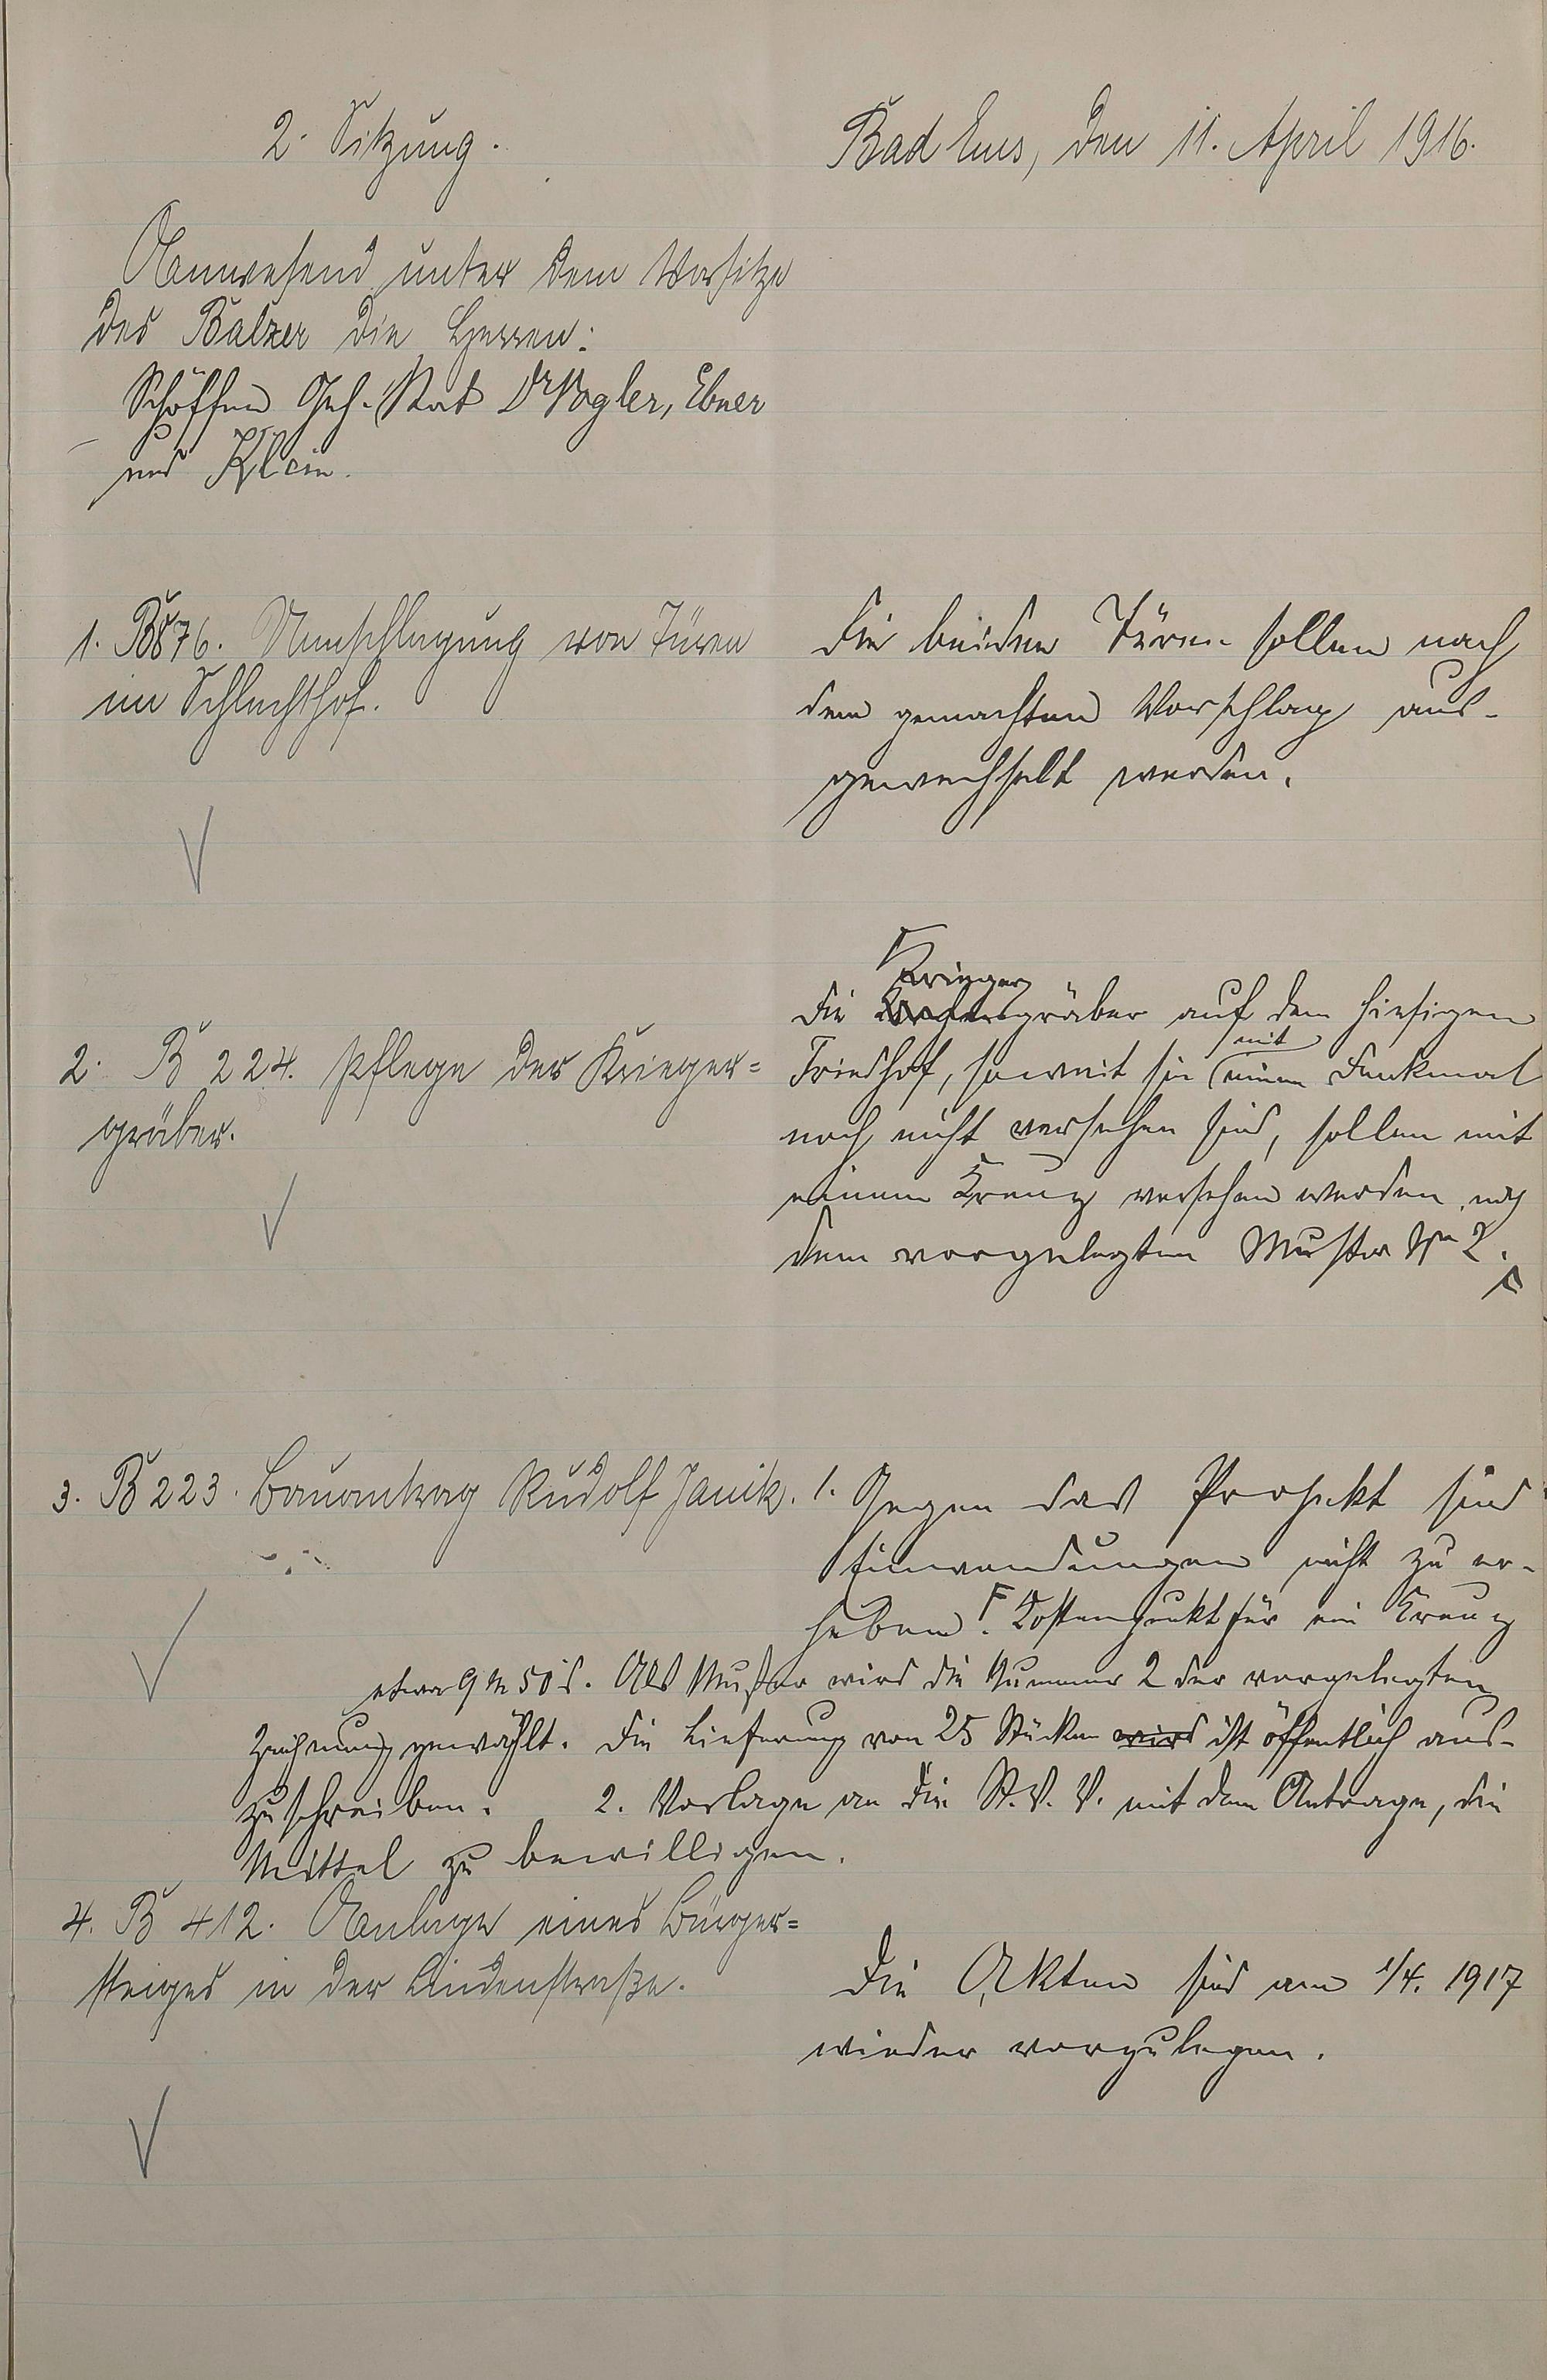 2. Sitzung.
Bad Ems, den 11. April 1916.
Anwesend unter dem Vorsitze
des Balzer die Herren:
Schöffen Geh. Rat Dr Vogler, Ebner
und Klein.
1. B 876. Umschlagung von Türen
im Schlachthof.
Die beiden Türen sollen nach
dem gemachten Vorschlag aus-
gewechselt werden.
2. B 224. Pflege der Krieger-
gräber.
Krieger
Die gräber auf dem hiesigen
mit
Friedhof, soweit sie einem Denkmal
noch nicht versehen sind, sollen mit
einem Kreuz versehen werden nach
dem vorgelegten Muster No 2.
3. B 223. Bauantrag Rudolf Janik.
1. Gegen das Projekt sind
Einwendungen nicht zu er-
heben. Γ Kostenpunkt für ein Kreuz
etwa 9 M 50 d. Als Muster wird die Nummer 2 der vorgelegten
Zeichnung gewählt. Die Lieferung von 25 Stücken wird ist öffentlich aus-
zuschreiben. 2. Vorlage an die St. V. V. mit dem Antrage, die
Mittel zu bewilligen.
4. B 412. Anlage eines Bürger-
steiges in der Lindenstraße.
Die Akten sind am 1/4. 1917
wieder vorzulegen.